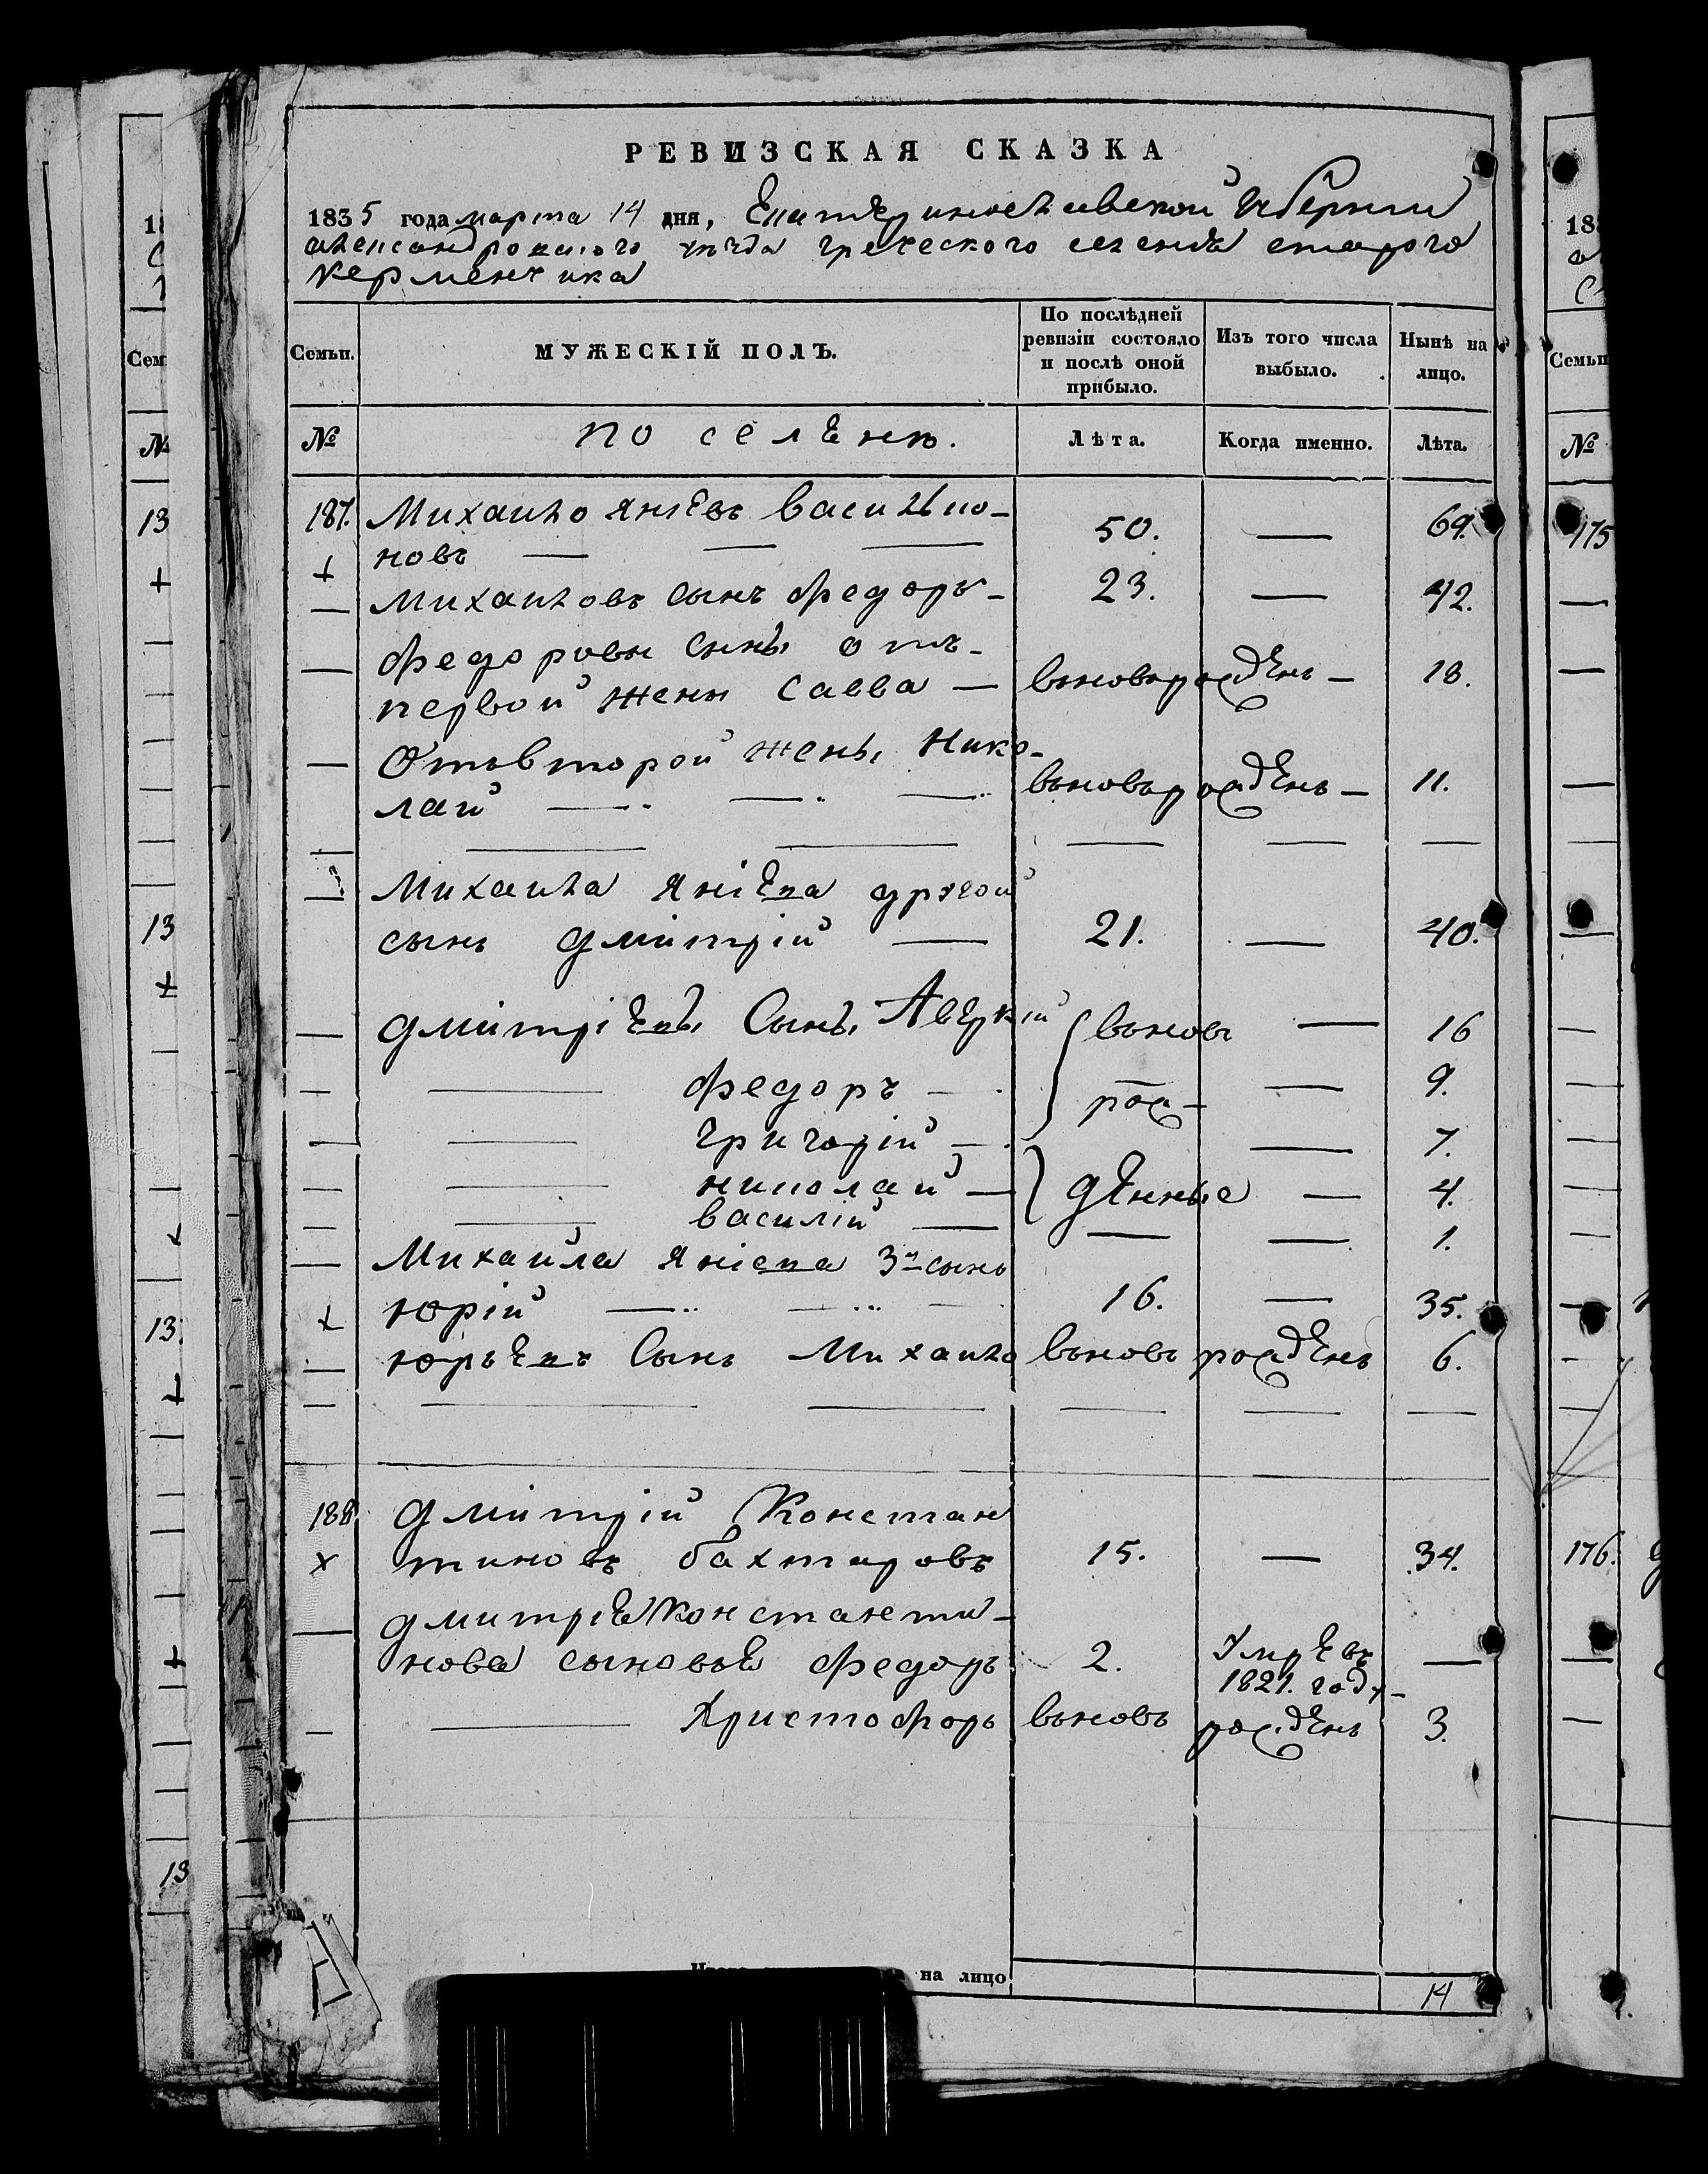 РЕВИЗСКАЯ СКАЗКА
1835 года марта 14 дня, Екатеринославской губернии
александровского уезда греческого селения старого
керменчика
Семьи.
МУЖЕСКІЙ ПОЛЪ.
По послѣдней ревизіи состояло и послѣ оной прибыло.
Изъ того числа выбыло.
Нынѣ на лицо.
№ по селенію. Лѣта. Когда именно. Лѣта.
187. Михайло Яніевъ Васильно- 50. — 69.
новъ
Михайловъ сынъ федоръ 23. — 42.
федоровы сыны отъ
первой жены Савва — вновь рожденъ — 18.
Отъ второй жены Нико-
лай вновь рожденъ — 11.
Михайла Яніева другой
сынъ дмитрій — 21. — 40.
дмитріевы Сыны Аверкій вновь — 16
федоръ — рож- — 9.
григорій — — 7.
николай — денные — 4.
василій — — 1.
Михайла Яніева 3й сынъ
юрій 16. — 35.
юрьевъ Сынъ Михайло вновь рожденъ 6.
188 дмитрій Констан
тиновъ бахтаровъ 15. — 34.
дмитрія Константи-
нова сыновья федоръ 2. Умре въ
1821. году —
Христофоръ вновь рожденъ 3.
на лицо 14
13
13
13
13
175
176.
Семьи
№